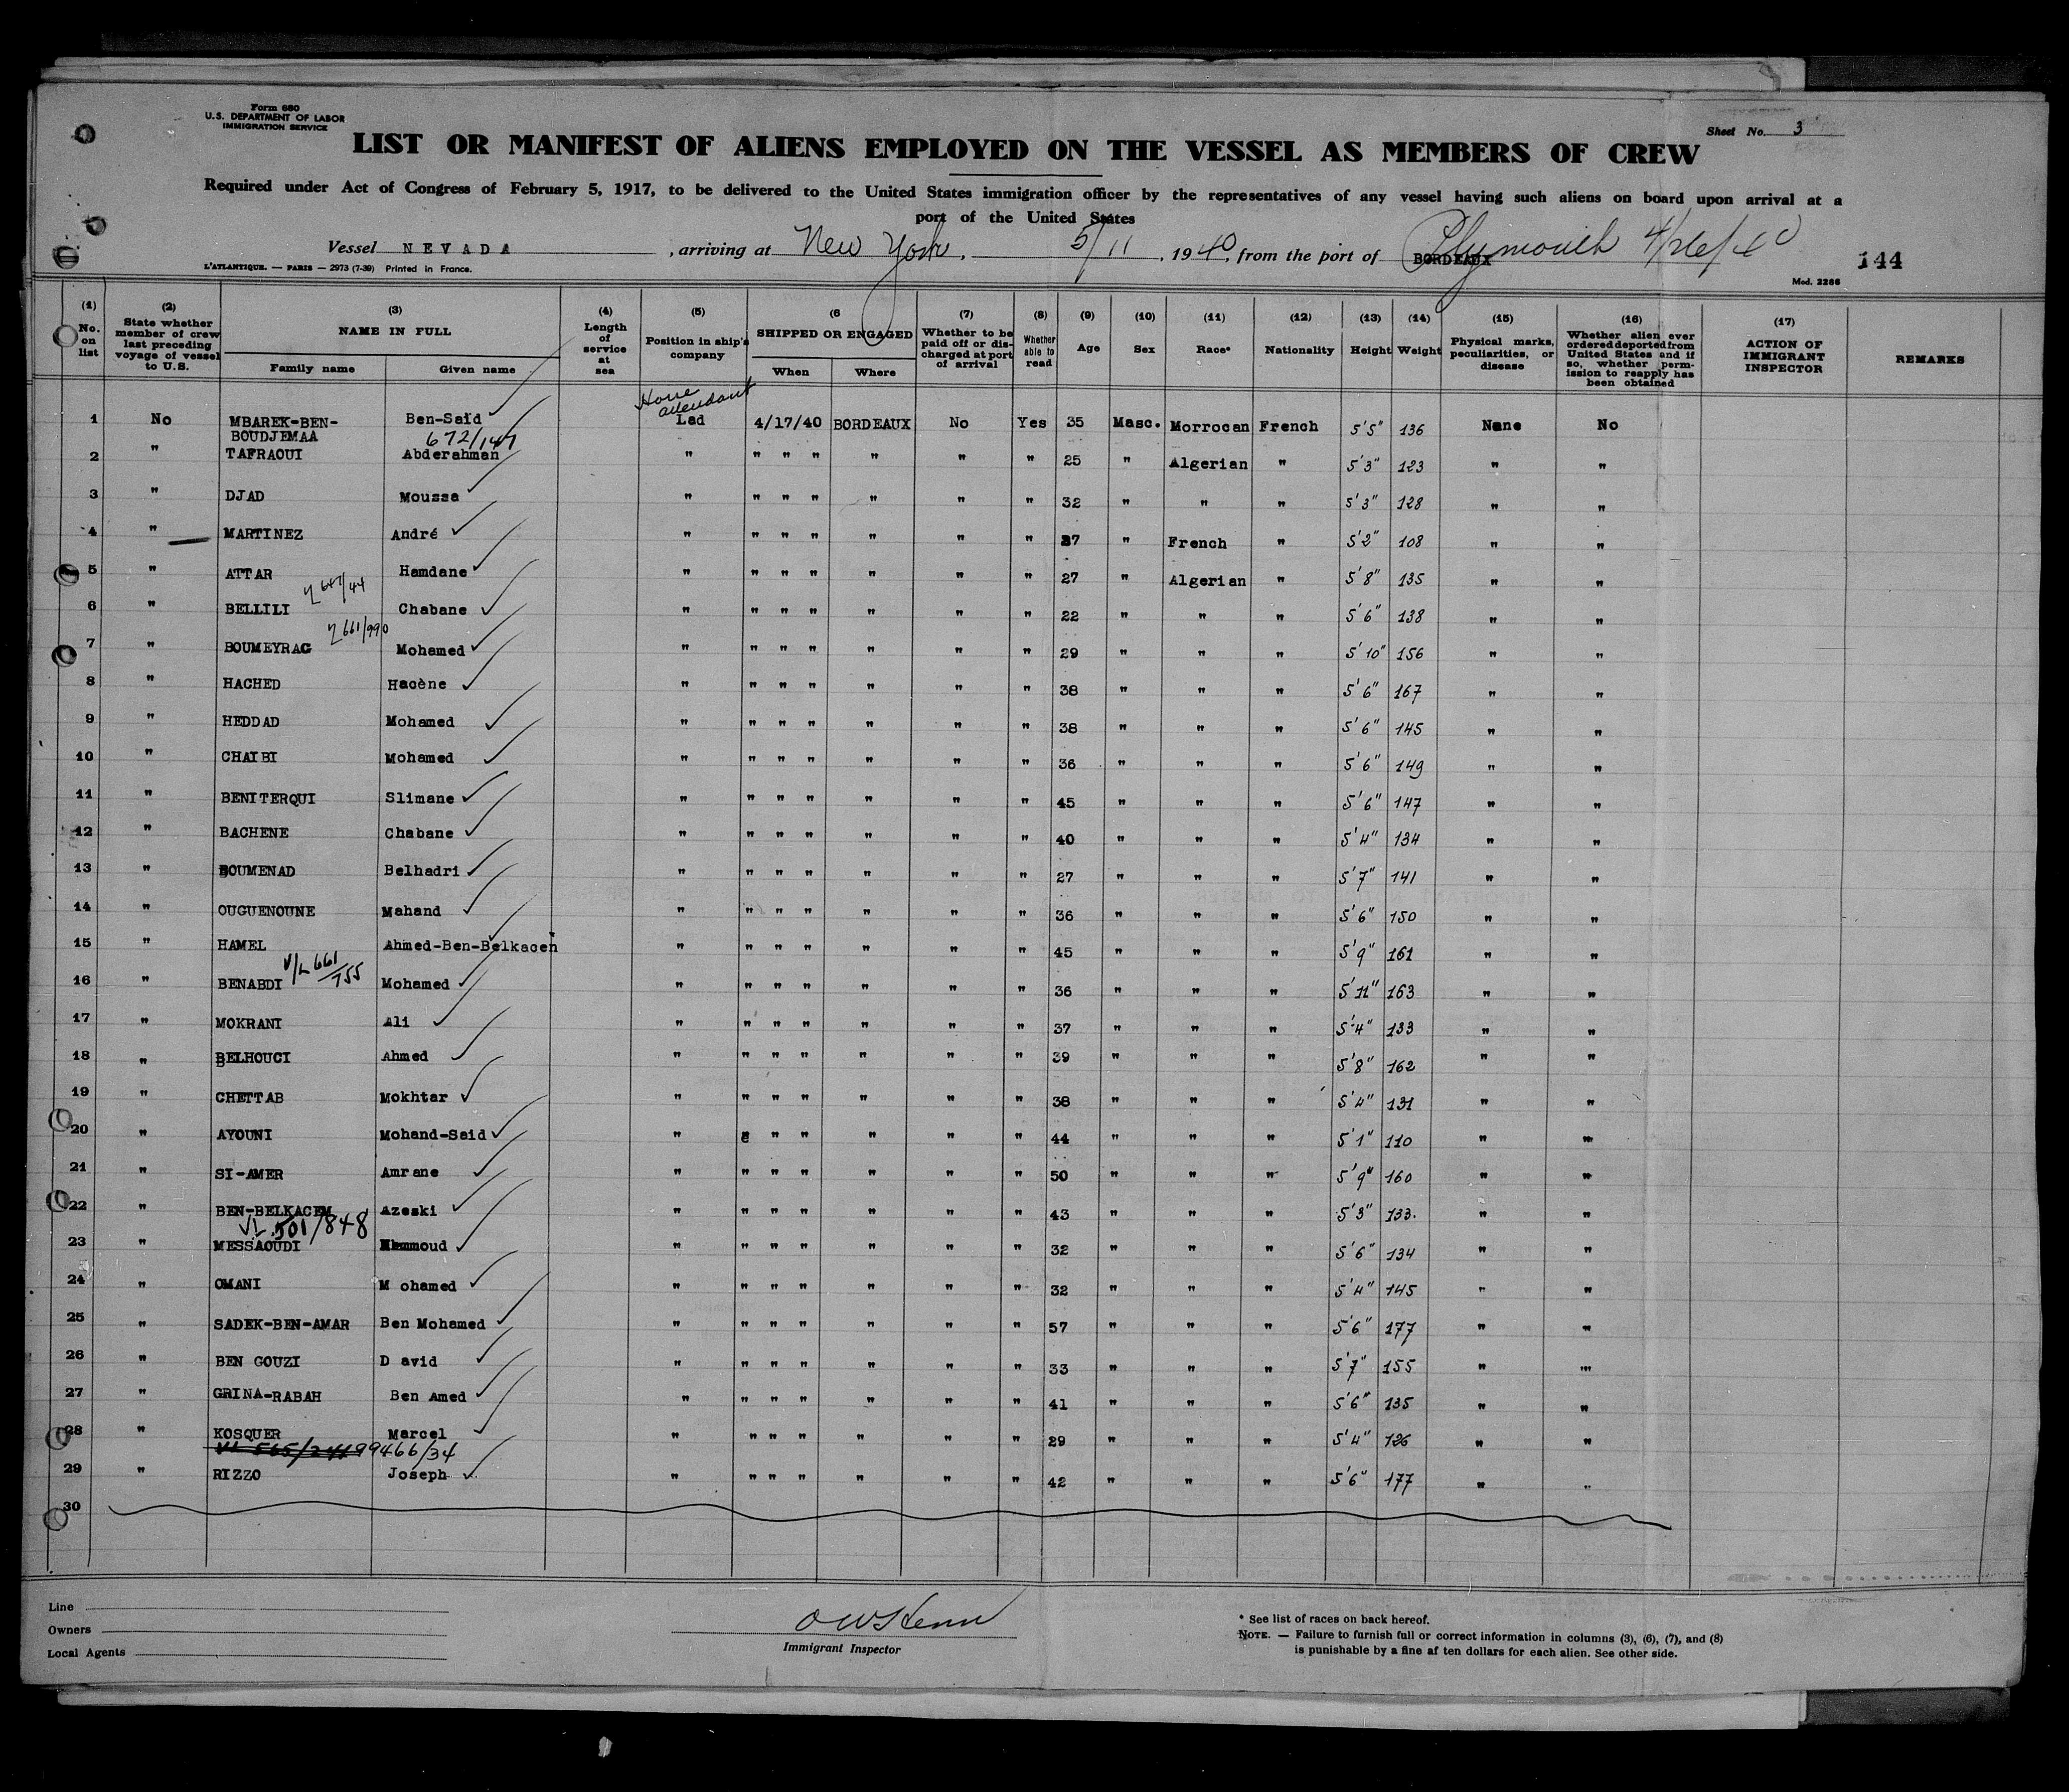 Form 680
U.S. DEPARTMENT OF LABOR
IMMIGRATION SERVICE
Sheet No. 3
LIST OR MANIFEST OF ALIENS EMPLOYED ON THE VESSEL AS MEMBERS OF CREW
Required under Act of Congress of February 5, 1917, to be delivered to the United States immigration officer by the representatives of any vessel having such aliens on board upon arrival at a
port of the United States
Vessel NEVADA, arriving at New York, 5/11, 1940, from the port of BORDEAUX Plymouth 4/26/40
144
L'ATLANTIQUE. — PARIS — 2973 (7-39) Printed in France.
Mod. 2266
(1) No. on list (2) State whether member of crew last preceding voyage of vessel to U.S. (3) NAME IN FULL Family name Given name (4) Length of service at sea (5) Position in ship's company (6 SHIPPED OR ENGAGED When Where (7) Whether to be paid off or discharged at port of arrival (8) Whether able to read (9) Age (10) Sex (11) Race* (12) Nationality (13) Height (14) Weight (15) Physical marks, peculiarities, or disease (16) Whether alien ever ordered deported from United States and if so, whether permission to reapply has been obtained (17) ACTION OF IMMIGRANT INSPECTOR REMARKS
Horse attendant
1 No MBAREK-BEN-BOUDJEMAA Ben-Saïd Lad 4/17/40 BORDEAUX No Yes 35 Masc. Morrocan French 5'5" 136 None No
672/147
2 " TAFRAOUI Abderahman " " " " " " " 25 " Algerian " 5'3" 123 " "
3 " DJAD Moussa " " " " " " " 32 " " " 5'3" 128 " "
4 " MARTINEZ André " " " " " " " 37 " French " 5'2" 108 " "
5 " ATTAR Hamdane " " " " " " " 27 " Algerian " 5'8" 135 " "
6 " BELLILI Chabane " " " " " " " 22 " " " 5'6" 138 " "
661/990
7 " BOUMEYRAG Mohamed " " " " " " " 29 " " " 5'10" 156 " "
8 " HACHED Hacène " " " " " " " 38 " " " 5'6" 167 " "
9 " HEDDAD Mohamed " " " " " " " 38 " " " 5'6" 145 " "
10 " CHAIBI Mohamed " " " " " " " 36 " " " 5'6" 149 " "
11 " BENITERQUI Slimane " " " " " " " 45 " " " 5'6" 147 " "
12 " BACHENE Chabane " " " " " " " 40 " " " 5'4" 134 " "
13 " BOUMENAD Belhadri " " " " " " " 27 " " " 5'7" 141 " "
14 " OUGUENOUNE Mahand " " " " " " " 36 " " " 5'6" 150 " "
15 " HAMEL Ahmed-Ben-Belkacem " " " " " " " 45 " " " 5'9" 161 " "
V/L 661/755
16 " BENABDI Mohamed " " " " " " " 36 " " " 5'11" 163 " "
17 " MOKRANI Ali " " " " " " " 37 " " " 5'4" 133 " "
18 " BELHOUCI Ahmed " " " " " " " 39 " " " 5'8" 162 " "
19 " CHETTAB Mokhtar " " " " " " " 38 " " " 5'4" 131 " "
20 " AYOUNI Mohand-Said " " " " " " " 44 " " " 5'1" 110 " "
21 " SI-AMER Amrane " " " " " " " 50 " " " 5'9" 160 " "
22 " BEN-BELKACEM Azeski " " " " " " " 43 " " " 5'3" 133 " "
VL 501/848
23 " MESSAOUDI Hammoud " " " " " " " 32 " " " 5'6" 134 " "
24 " OMANI M ohamed " " " " " " " 32 " " " 5'4" 145 " "
25 " SADEK-BEN-AMAR Ben Mohamed " " " " " " " 57 " " " 5'6" 177 " "
26 " BEN GOUZI D avid " " " " " " " 33 " " " 5'7" 155 " "
27 " GRINA-RABAH Ben Amed " " " " " " " 41 " " " 5'6" 135 " "
28 " KOSQUER Marcel " " " " " " " 29 " " " 5'4" 126 " "
99466/34
29 " RIZZO Joseph " " " " " " " 42 " " " 5'6" 177 " "
30
Line
Owners
Local Agents
Immigrant Inspector
* See list of races on back hereof.
NOTE. — Failure to furnish full or correct information in columns (3), (6), (7), and (8)
is punishable by a fine af ten dollars for each alien. See other side.